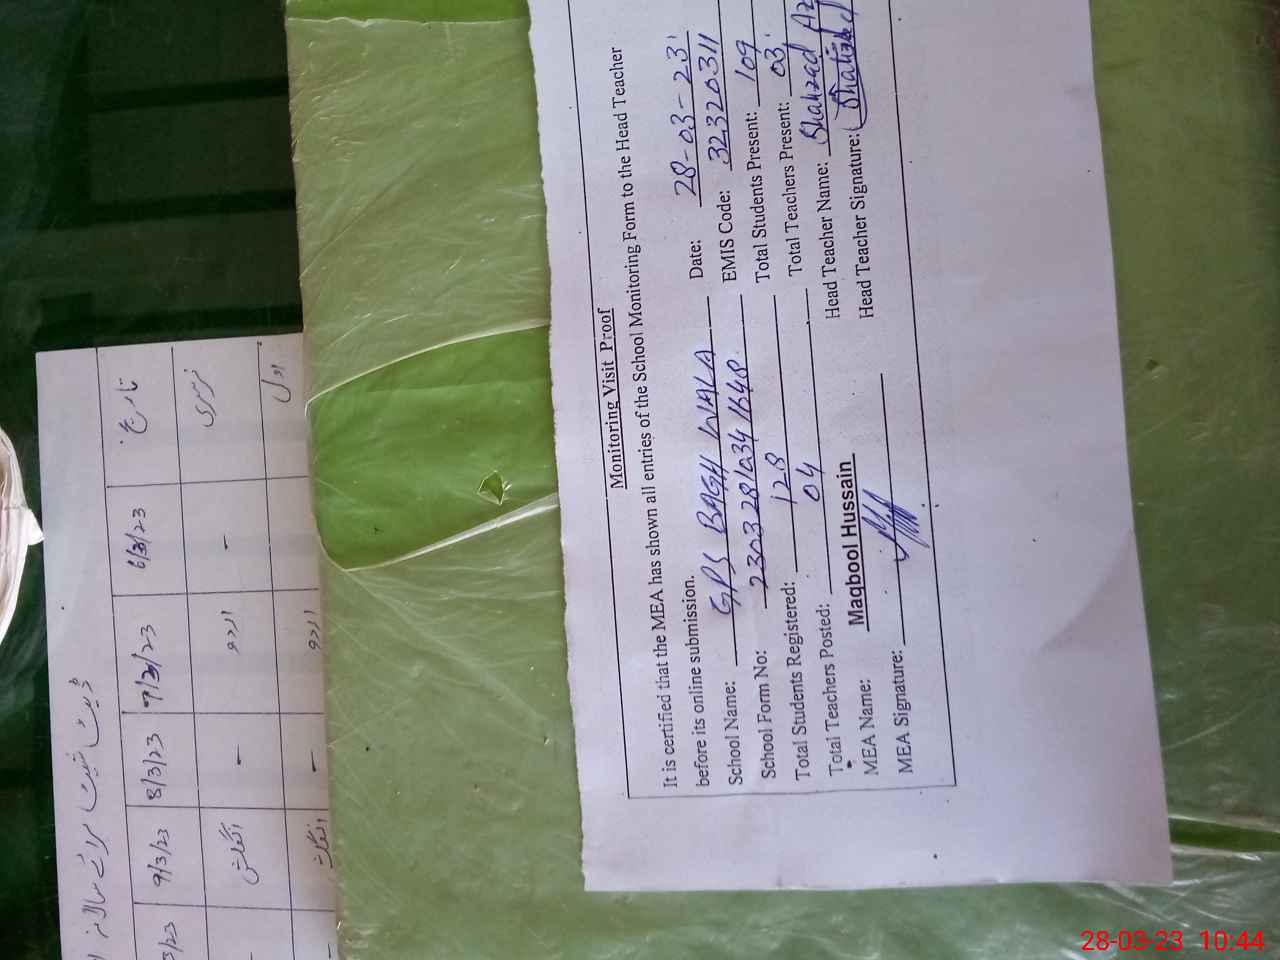 Monitoring Visit Proof
It is certified that the MEA has shown all entries of the School Monitoring Form to the Head Teacher
before its online submission.
School Name: GPS BAGH WALA Date: 28-03-23
School Form No: 23032810341648 EMIS Code: 32320311
Total Students Registered: 128 Total Students Present: 109
Total Teachers Posted: 04 Total Teachers Present: 03
MEA Name: Maqbool Hussain Head Teacher Name: Shahzad
MEA Signature: Head Teacher Signature:
ڈیٹ شیٹ برائے سالانہ
تاریخ 6/3/23 7/3/23 8/3/23 9/3/23 3/23
نرسری - اردو - انگلش -
اول اردو - انگلش -
28-03-23 10:44